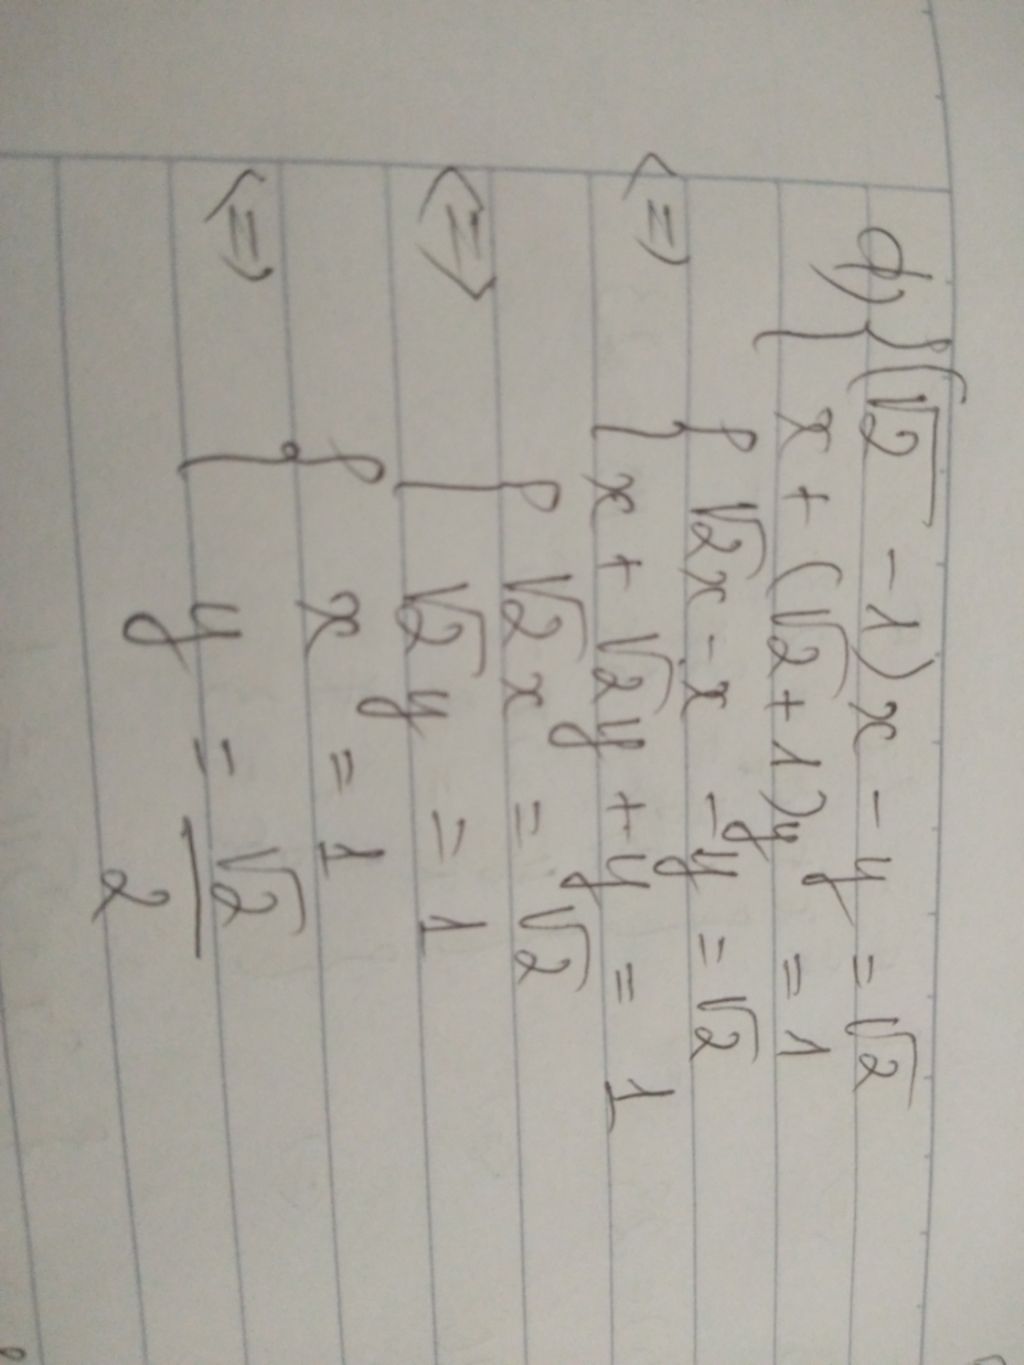 d) { (√2 - 1)x - y = √2
x + (√2 + 1)y = 1
<=> { √2x - x - y = √2
x + √2y + y = 1
<=> { √2x = √2
√2y = 1
<=> { x = 1
y = √2/2